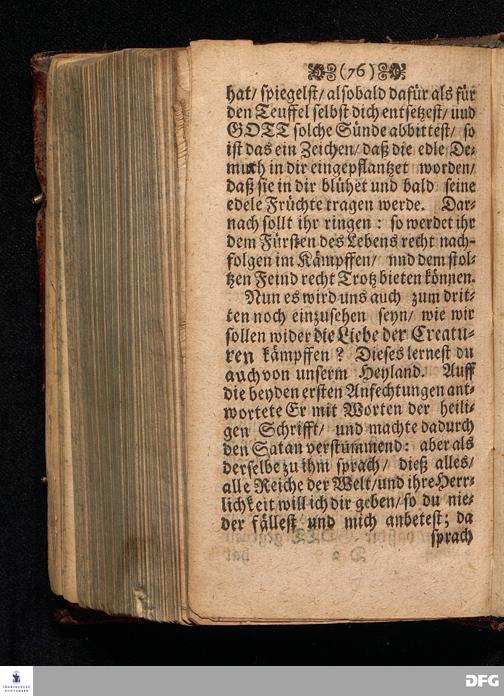 (76)
hat/ spiegelst/ alsobald dafür als für
den Teuffel selbst dich entsetzest/ und
GOTT solche Sünde abbittest/ so
ist das ein Zeichen/ daß die edle De-
muth in dir eingepflantzet worden/
daß sie in dir blühet und bald seine
edele Früchte tragen werde. Dar-
nach sollt ihr ringen : so werdet ihr
dem Fürsten des Lebens recht nach-
folgen im Kämpffen/ und dem stol-
tzen Feind recht Trotz bieten können.
Nun es wird uns auch zum drit-
ten noch einzusehen seyn/ wie wir
sollen wider die Liebe der Creatu-
ren kämpffen ? Dieses lernest du
auch von unserm Heyland. Auff
die beyden ersten Anfechtungen ant-
wortete Er mit Worten der heili-
gen Schrifft/ und machte dadurch
den Satan verstummend : aber als
derselbe zu ihm sprach/ dieß alles/
alle Reiche der Welt/ und ihre Herr-
lichkeit will ich dir geben/ so du nie-
der fällest und mich anbetest; da
sprach
FRANCKESCHE
STIFTUNGEN
DFG